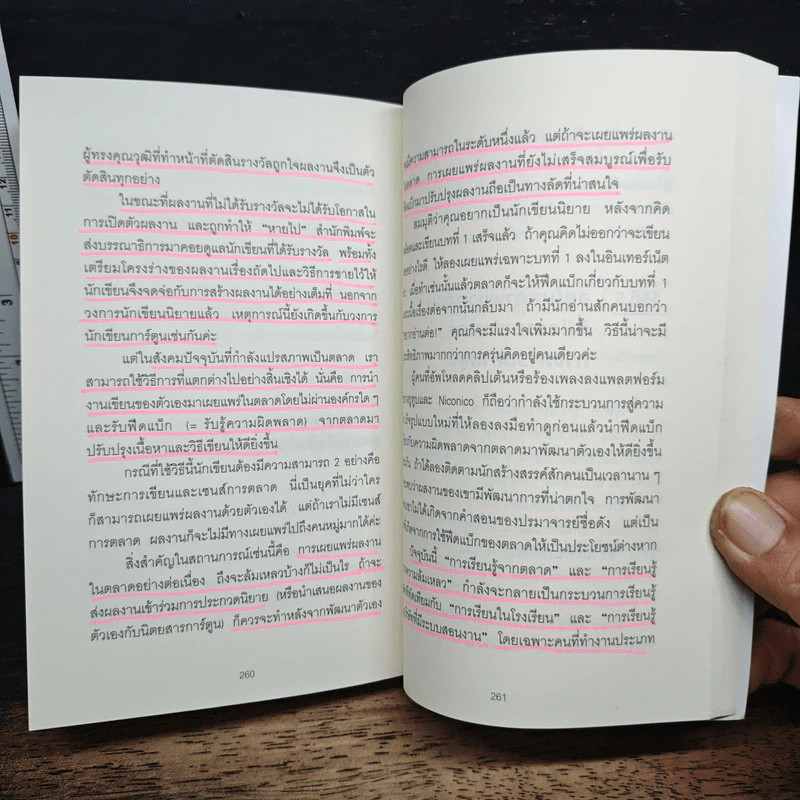 ผู้ทรงคุณวุฒิที่ทำหน้าที่ตัดสินรางวัลถูกใจผลงานจึงเป็นตัว
ตัดสินทุกอย่าง
ในขณะที่ผลงานที่ไม่ได้รับรางวัลจะไม่ได้รับโอกาสใน
การเปิดตัวผลงาน และถูกทำให้ "หายไป" สำนักพิมพ์จะ
ส่งบรรณาธิการมาคอยดูแลนักเขียนที่ได้รับรางวัล พร้อมทั้ง
เตรียมโครงร่างของผลงานเรื่องถัดไปและวิธีการขายไว้ให้
นักเขียนจึงจดจ่อกับการสร้างผลงานได้อย่างเต็มที่ นอกจาก
วงการนักเขียนนิยายแล้ว เหตุการณ์นี้ยังเกิดขึ้นกับวงการ
นักเขียนการ์ตูนเช่นกันค่ะ
แต่ในสังคมปัจจุบันที่กำลังแปรสภาพเป็นตลาด เรา
สามารถใช้วิธีการที่แตกต่างไปอย่างสิ้นเชิงได้ นั่นคือ การนำ
งานเขียนของตัวเองมาเผยแพร่ในตลาดโดยไม่ผ่านองค์กรใด ๆ
และรับฟีดแบ็ก (= รับรู้ความผิดพลาด) จากตลาดมา
ปรับปรุงเนื้อหาและวิธีเขียนให้ดียิ่งขึ้น
กรณีที่ใช้วิธีนี้นักเขียนต้องมีความสามารถ 2 อย่างคือ
ทักษะการเขียนและเซนส์การตลาด นี่เป็นยุคที่ไม่ว่าใคร
ก็สามารถเผยแพร่ผลงานด้วยตัวเองได้ แต่ถ้าเราไม่มีเซนส์
การตลาด ผลงานก็จะไม่มีทางเผยแพร่ไปถึงคนหมู่มากได้ค่ะ
สิ่งสำคัญในสถานการณ์เช่นนี้คือ การเผยแพร่ผลงาน
ในตลาดอย่างต่อเนื่อง ถึงจะล้มเหลวบ้างก็ไม่เป็นไร ถ้าจะ
ส่งผลงานเข้าร่วมการประกวดนิยาย (หรือนำเสนอผลงานของ
ตัวเองกับนิตยสารการ์ตูน) ก็ควรจะทำหลังจากพัฒนาตัวเอง
260
มีความสามารถในระดับหนึ่งแล้ว แต่ถ้าจะเผยแพร่ผลงาน
ตลาด การเผยแพร่ผลงานที่ยังไม่เสร็จสมบูรณ์เพื่อรับ
มาปรับปรุงผลงานถือเป็นทางลัดที่น่าสนใจ
สมมุติว่าคุณอยากเป็นนักเขียนนิยาย หลังจากคิด
และเขียนบทที่ 1 เสร็จแล้ว ถ้าคุณคิดไม่ออกว่าจะเขียน
อย่างไรดี ให้ลองเผยแพร่เฉพาะบทที่ 1 ลงในอินเทอร์เน็ต
เมื่อทำเช่นนั้นแล้วตลาดก็จะให้ฟีดแบ็กเกี่ยวกับบทที่ 1
เนื้อเรื่องต่อจากนั้นกลับมา ถ้ามีนักอ่านสักคนบอกว่า
อ่านต่อ!" คุณก็จะมีแรงใจเพิ่มมากขึ้น วิธีนี้น่าจะมี
มากกว่าการครุ่นคิดอยู่คนเดียวค่ะ
ผู้คนที่อัพโหลดคลิปเต้นหรือร้องเพลงลงแพลตฟอร์ม
และ Niconico ก็ถือว่ากำลังใช้กระบวนการสู่ความ
รูปแบบใหม่ที่ให้ลองลงมือทำดูก่อนแล้วนำฟีดแบ็ก
ความผิดพลาดจากตลาดมาพัฒนาตัวเองให้ดียิ่งขึ้น
ถ้าได้ลองติดตามนักสร้างสรรค์สักคนเป็นเวลานาน ๆ
ว่าผลงานของเขามีพัฒนาการที่น่าตกใจ การพัฒนา
ไม่ได้เกิดจากคำสอนของปรมาจารย์ชื่อดัง แต่เป็น
เกิดจากการใช้ฟีดแบ็กของตลาดให้เป็นประโยชน์ต่างหาก
ปัจจุบันนี้ "การเรียนรู้จากตลาด" และ "การเรียนรู้
ความล้มเหลว" กำลังจะกลายเป็นกระบวนการเรียนรู้
"การเรียนในโรงเรียน" และ "การเรียนรู้
ที่มีระบบสอนงาน" โดยเฉพาะคนที่ทำงานประเภท
261